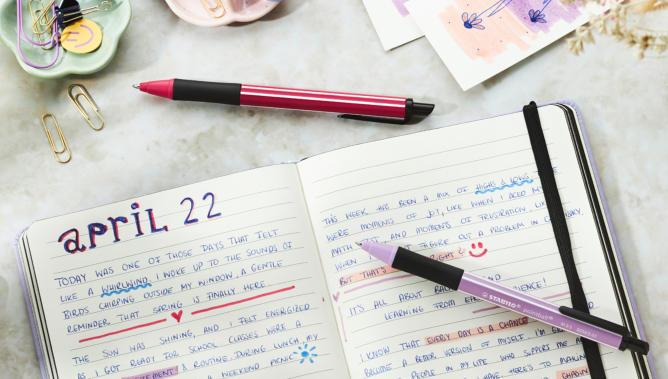 april 22
TODAY WAS ONE OF THOSE DAYS THAT FELT
LIKE A WHIRLWIND. I WOKE UP TO THE SOUNDS OF
BIRDS CHIRPING OUTSIDE MY WINDOW, A GENTLE
REMINDER THAT SPRING IS FINALLY HERE.
THE SUN WAS SHINING, AND I FELT ENERGIZED
AS I GOT READY FOR SCHOOL. CLASSES WERE A
& ROUTINE. DURING LUNCH, MY
A WEEKEND PICNIC
THIS WEEK HAS BEEN A MIX OF HIGHS & LOWS.
WERE MOMENTS OF JOY, LIKE WHEN I ACED MY
MATH AND MOMENTS OF FRUSTRATION, LIKE
WHEN FIGURE OUT A PROBLEM IN
BUT THAT'S
IT'S ALL ABOUT AND
LEARNING FROM
I KNOW THAT EVERY DAY IS A CHANCE
BECOME A BETTER VERSION OF MYSELF. I'M
PEOPLE IN MY LIFE WHO SUPPORT ME
HERE'S TO
STABILO